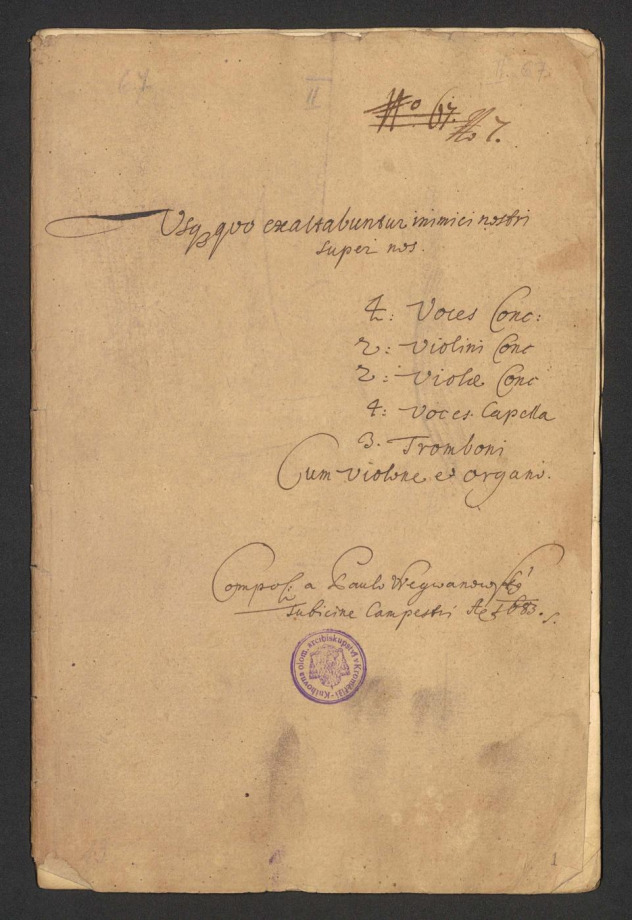 67.
II
II. 67.
No 67.
No 7.
Usqquo exaltabuntur inimici nostri
super nos.
4: Voces Conc:
2: Violini Conc
2: Violæ Conc
4: Voces. Capella
3. Tromboni
Cum violone et organo.
Compos: a Paulo Weywanowsky
Tubicine Campestri Ao 1683.
Knihovna olom. arcibiskupství v Kroměříži
1